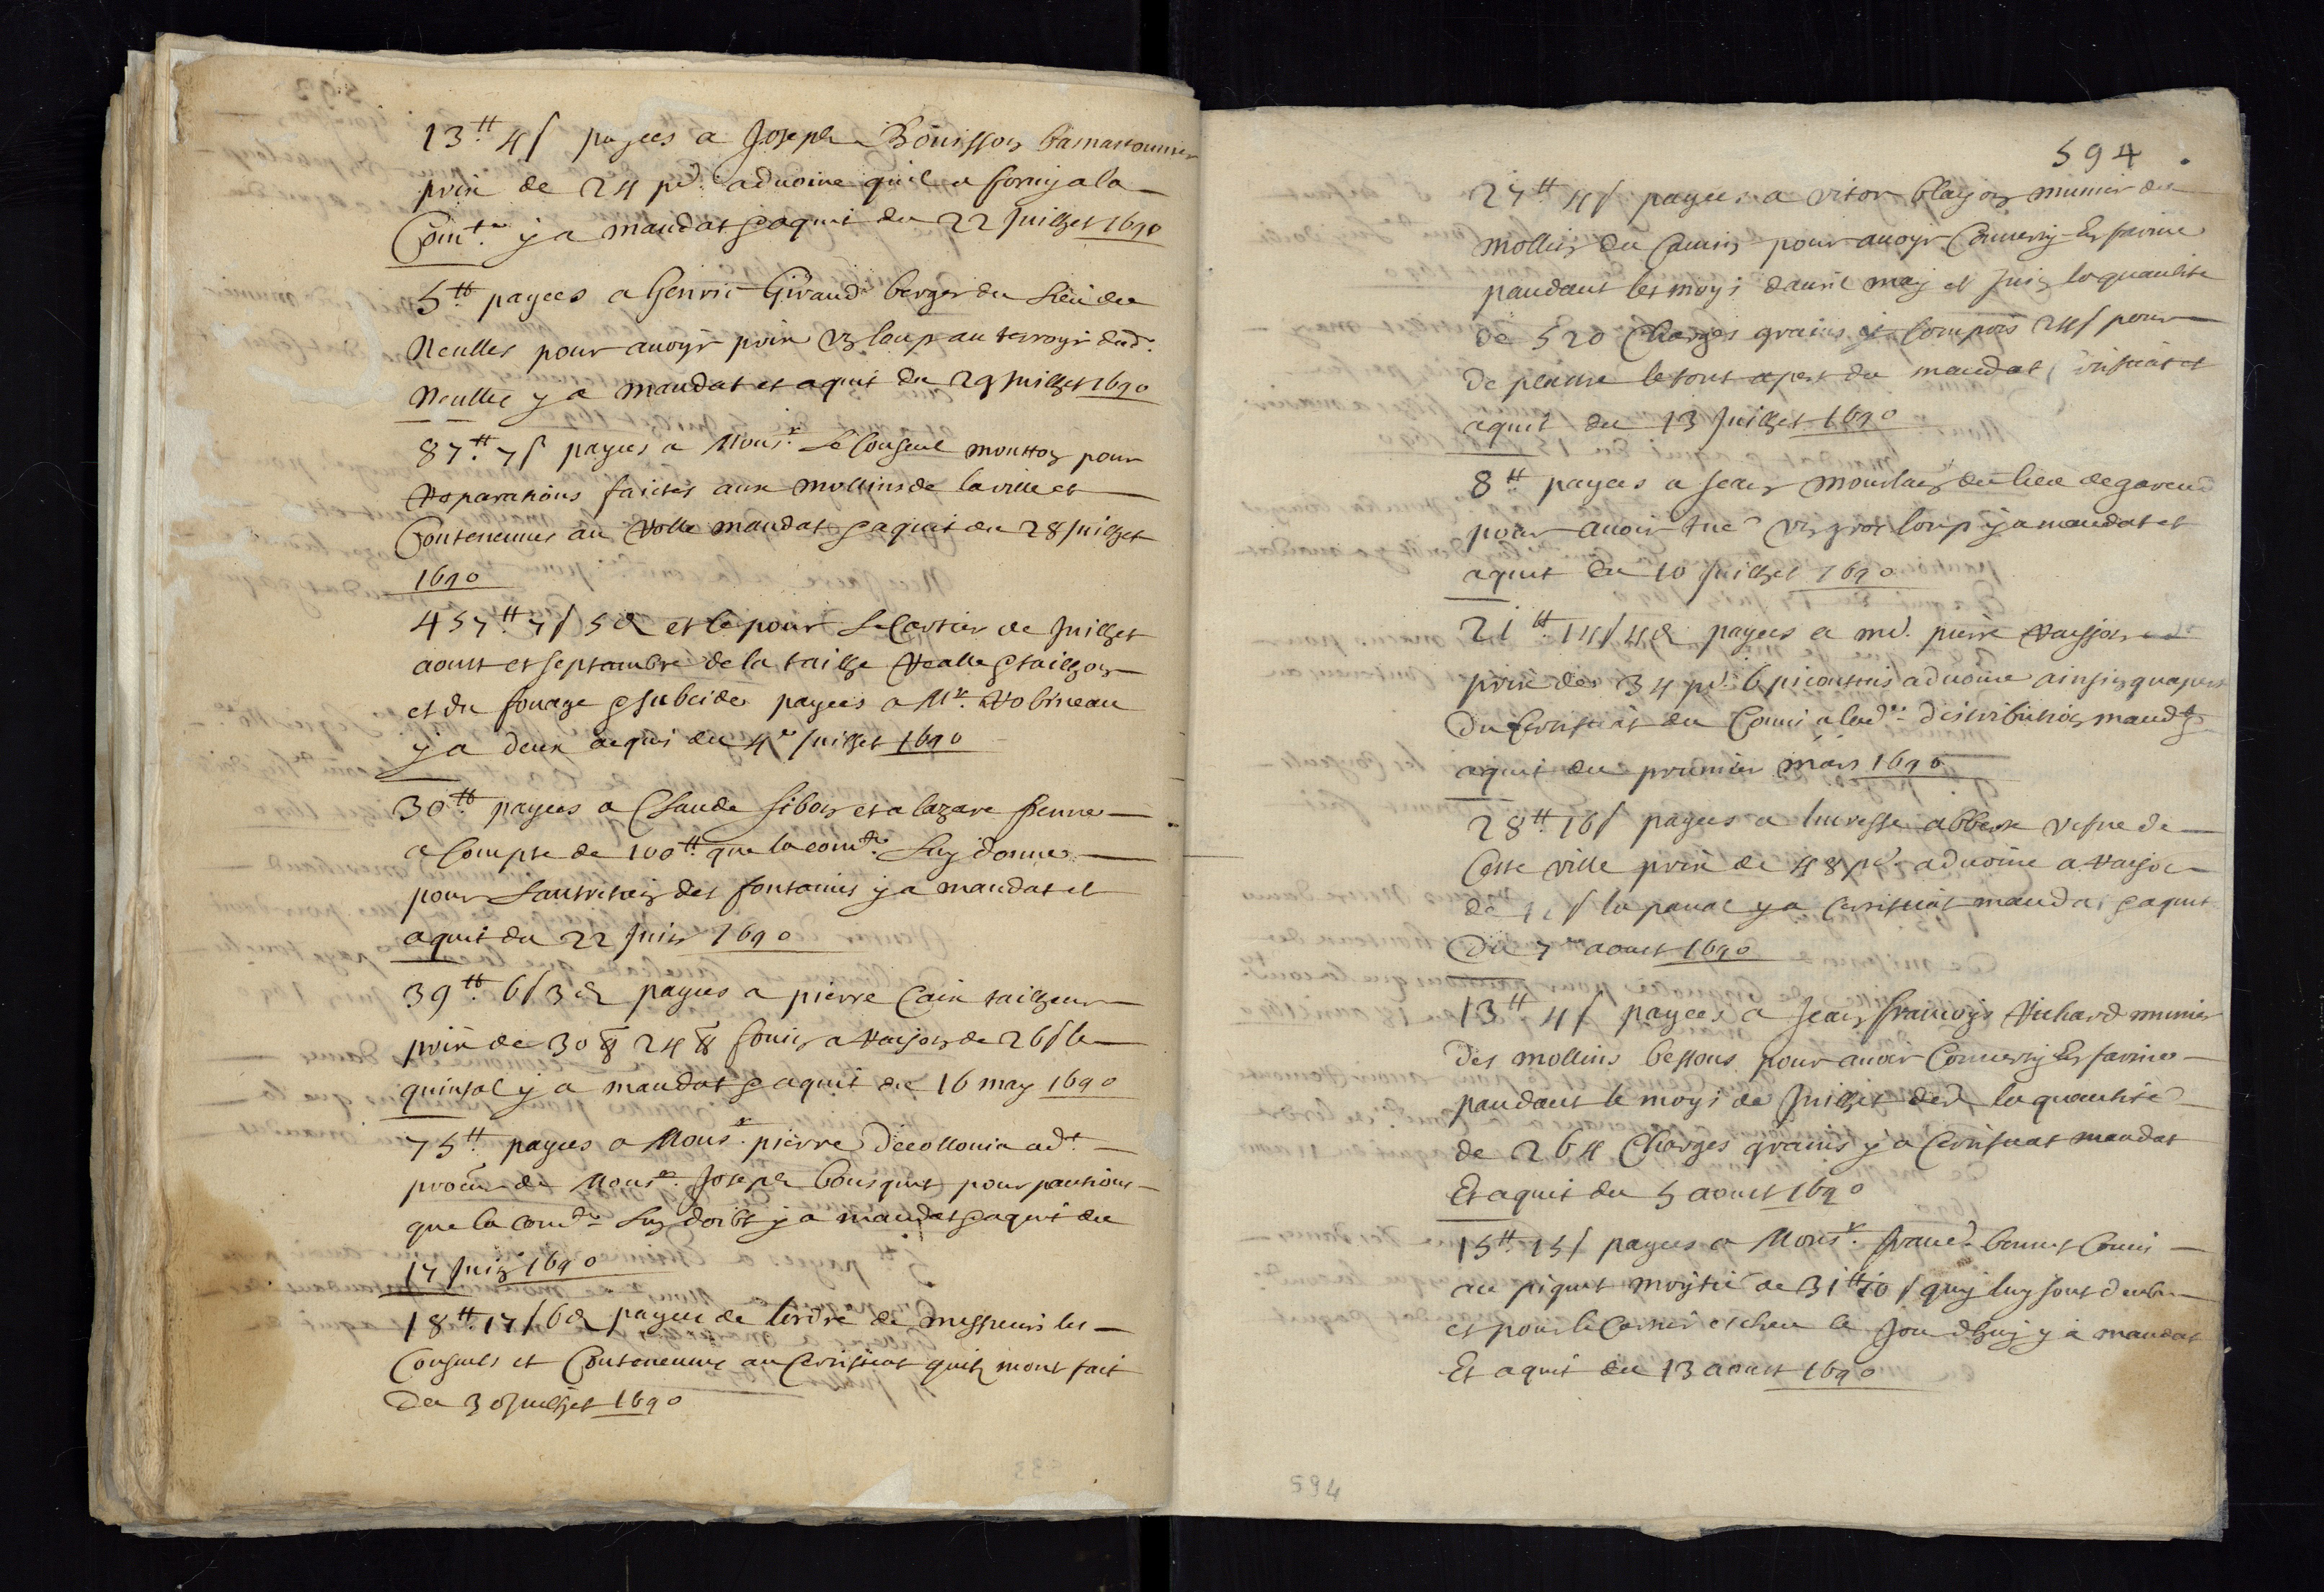 13 ₶ 4 s payees a Joseph Bouisson
prix de 24 pd advoine quil a forny a la
Com.te y a mandat & aquit du 22 Juillet 1690
5 ₶ payees a henric Giraud berger du Lieu de
Neulles pour avoyr prin un loup au terroyr dud.
Neulles y a mandat et aquit du 29 Juillet 1690
87 ₶ 7 s payees a Mons.r Le Conseul moutton pour
Reparations faictes aux mollins de la ville et
Contenues au Rolle mandat & aquit du 28 Juillet
1690
457 ₶ 7 s 5 d et le pour Le Cartier de Juillet
aoust et septambre de la taille Realle & taillon
et du fouage & subcides payees a Mr. Robineau
y a deux acquis du 4e Juillet 1690
30 ₶ payees a Claude sibon et a lazare
a Compte de 100 ₶ que la com.té Luy donne
pour Lantretien des fontaines y a mandat et
aquit du 22 Juin 1690
39 ₶ 6 s 3 d payees a pierre Cain tailleur
prix de 30 q 24 ₶ foin a Raison de 26 s le
quintal y a mandat & aquit du 16 may 1690
75 ₶ payees a Mons.r pierre Decollonia ad.t
procur de Mons.r Joseph bousquet pour pantions
que la com.té Luy doibt y a mandat & aquit du
17 Juin 1690
18 ₶ 17 s 6 d payees de lordre de messieurs les
Conseuls et Conteneues au Certificat quils mont fait
Du 30 Juillet 1690
594
27 ₶ 4 s payees a vitor blayon munier du
mollin du Camin pour avoyr Converty En farine
pandant les moys davril may et Juin la quantite
de 520 Charges grains y Compris 24 s pour
de le tout apert du mandat, Certificat et
aquit du 13 Juillet 1690
8 ₶ payees a Jean mourlan du lieu de
pour avoir tue un gros loup y a mandat et
aquit du 10 Juillet 1690
21 ₶ 14 s 4 d payees a md. pierre Raisson
prix de 34 pd. 6 picoutins advoine ainsin quapert
Du Certificat du Comis a lad. distribution mand.t &
aquit du premier mars 1690
28 ₶ 16 s payees a lucresse abbesse vefve de
Ceste ville prix de 48 pd. advoine a Raison
de 12 s la panal y a Certificat mandat & aquit
Du 7e aoust 1690
13 ₶ 4 s payees a Jean francoys Richard munier
des mollins bessons pour avoir Converty En farine
pandant le moys de Juillet der. la quantité
de 264 Charges grains y a Certificat mandat
Et aquit du 5 aoust 1690
15 ₶ 15 s payees a Mons.r bonnet Comis
au piquet moytié de 31 ₶ 10 s quy luy sont deubes
et pour le Cartier escheu le Jour dhuy y a mandat
Et aquit du 13 aoust 1690
594